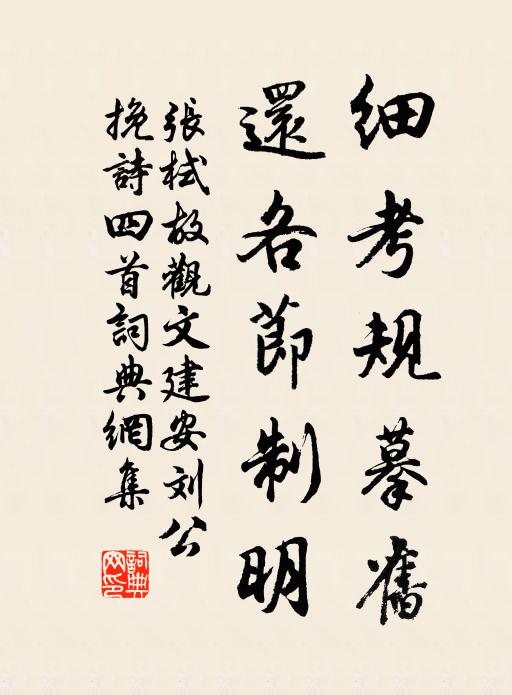 细考规摹舊
還各節制明
張栻故觀文建安刘公
挽詩四首詞典網集
詞典网印